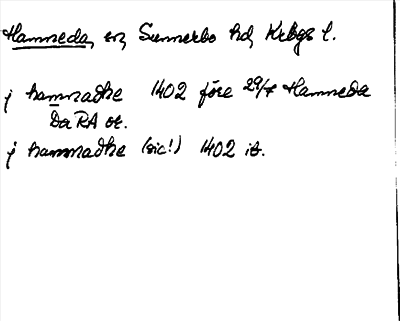 Hamneda, sn, Sunnerbo hd, Krbgs l.
j hamnadhe 1402 före 29/7 Hamneda
Da RA or.
j hammadhe (sic!) 1402 ib.